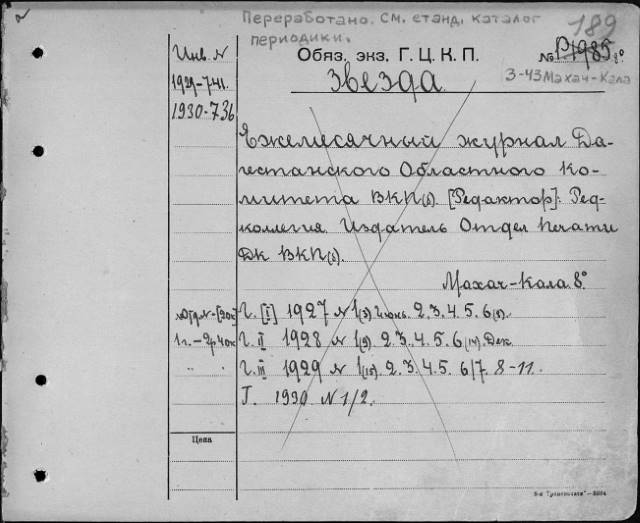 Переработано. См. станд. каталог
периодики.
189
Инв. N
Обяз. экз. Г. Ц. К. П.
№ Р1985 8°
Звезда
З-43 Махач-Кала
1929-741.
1930-736
Ежемесячный журнал Да-
гестанского Областного Ко-
митета ВКП(б). [Редактор]: Ред-
коллегия. Издатель Отдел Печати
ДК ВКП(б).
Махач-Кала. 8°
Г. [I] 1927 N 1(3) Июнь. 2. 3. 4. 5. 6(8).
1 г. – 2р. 40к
Г. II 1928 N 1(9). 2. 3. 4. 5. 6(14). Дек.
" "
Г. III 1929 N 1(15). 2. 3. 4. 5. 6/7. 8-11.
Г. 1930 N 1/2.
Цена